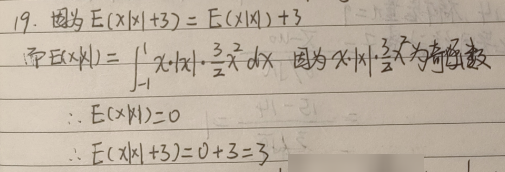 19. 因为 E(x|x|+3) = E(x|x|)+3
而E(x|x|) = ∫₋₁¹ x·|x|·3/2 x² dx 因为 x·|x|·3/2 x² 为奇函数
∴ E(x|x|)=0
∴ E(x|x|+3)=0+3=3